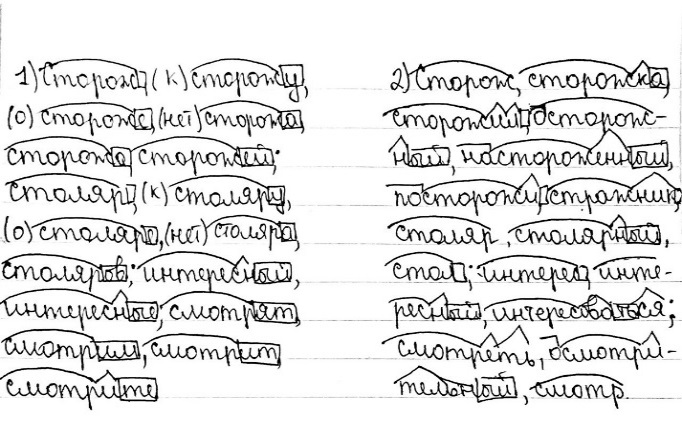 1) Сторож, (к) сторожу,
(о) стороже, (нет) сторожа,
сторожа, сторожей;
столяр, (к) столяру,
(о) столяре, (нет) столяра,
столяров; интересный,
интересные; смотрят,
смотрим, смотрит,
смотрите
2) Сторож, сторожка,
сторожил, осторож-
ный, настороженный,
посторожи, стражник,
столяр, столярный,
стол; интерес, инте-
ресный, интересоваться;
смотреть, осмотри-
тельный, смотр.